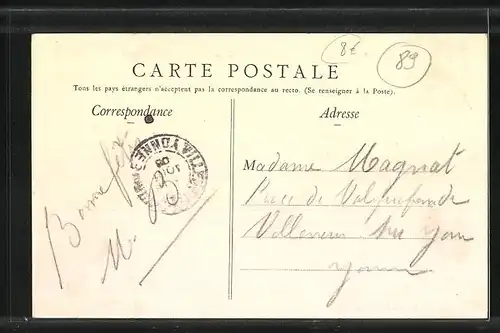 8€
89
CARTE POSTALE
Tous les pays étrangers n'acceptent pas la correspondance au recto. (Se renseigner à la Poste).
Correspondance
Adresse
Bonne fête
M.
Madame Magnat
Place de
Villeneuve sur Yonne
Yonne